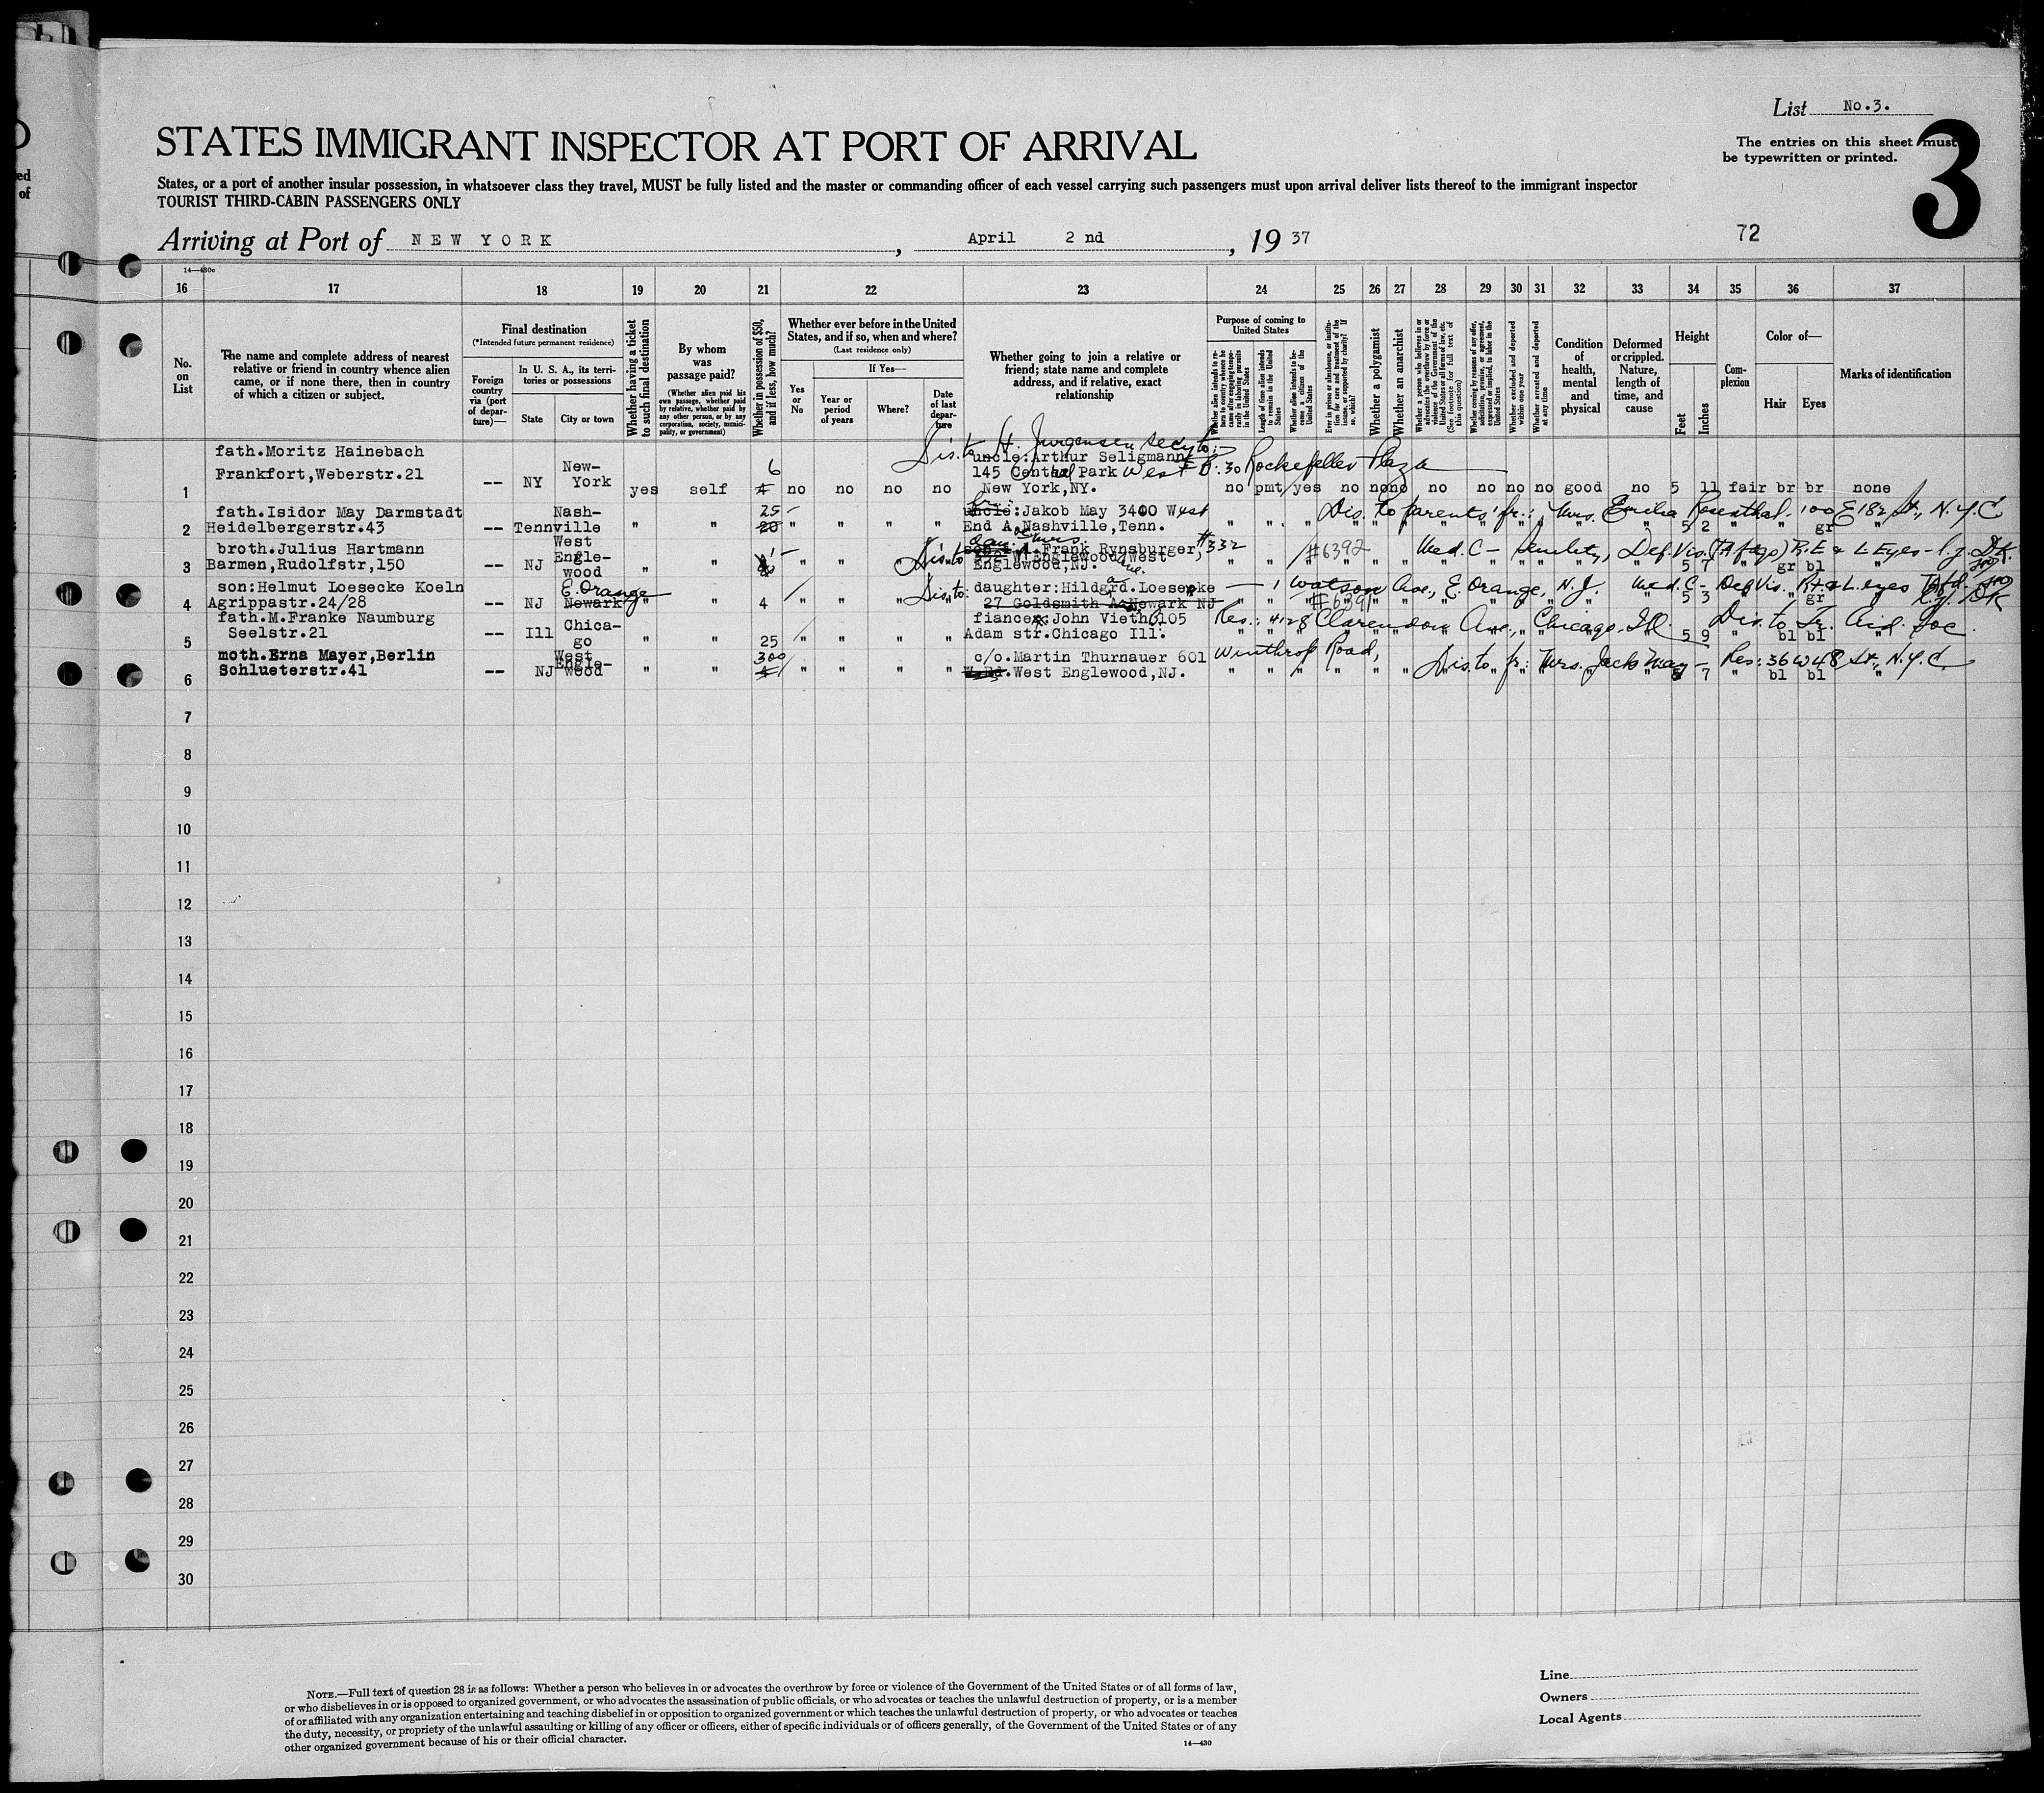 List No.3.
STATES IMMIGRANT INSPECTOR AT PORT OF ARRIVAL
The entries on this sheet must
be typewritten or printed.
3
States, or a port of another insular possession, in whatsoever class they travel, MUST be fully listed and the master or commanding officer of each vessel carrying such passengers must upon arrival deliver lists thereof to the immigrant inspector
TOURIST THIRD-CABIN PASSENGERS ONLY
Arriving at Port of NEW YORK, April 2 nd, 19 37
72
14—430e
16 17 18 19 20 21 22 23 24 25 26 27 28 29 30 31 32 33 34 35 36 37
No. on List
The name and complete address of nearest relative or friend in country whence alien came, or if none there, then in country of which a citizen or subject.
Final destination
(*Intended future permanent residence)
Foreign country via (port of departure)—
In U. S. A., its territories or possessions
State
City or town
Whether having a ticket to such final destination
By whom was passage paid?
(Whether alien paid his own passage, whether paid by relative, whether paid by any other person, or by any corporation, society, municipality, or government)
Whether in possession of $50, and if less, how much?
Whether ever before in the United States, and if so, when and where?
(Last residence only)
Yes or No
If Yes—
Year or period of years
Where?
Date of last departure
Whether going to join a relative or friend; state name and complete address, and if relative, exact relationship
Purpose of coming to United States
Length of time alien intends to remain in the United States
Whether alien intends to become a citizen of the United States
Whether a polygamist
Whether an anarchist
Whether excluded and deported within one year
Whether arrested and deported at any time
Condition of health, mental and physical
Deformed or crippled. Nature, length of time, and cause
Height
Feet
Inches
Complexion
Color of—
Hair
Eyes
Marks of identification
Dis. to H. Jurgensen secy to:
fath.Moritz Hainebach uncle:Arthur Seligmann
Frankfort,Weberstr.21 New- 6 145 Central Park West B. 30 Rockefeller Plaza
1 -- NY York yes self no no no no New York,NY. no pmt yes no no no no no no no good no 5 11 fair br br none
fath.Isidor May Darmstadt Nash- 25 uncle:Jakob May 3400 West Dis. to parents' fr.: Mrs. Emilia Rosenthal. 100 E 182 St., N.Y.C
2 Heidelbergerstr.43 -- Tennville " " 20 " " " " End A.Nashville,Tenn. " " " 5 2 " " gr "
West
broth.Julius Hartmann Engle- Dis. to Mrs. Frank Rynsburger, #332 #6392 Med. C - Senility, Def. Vis. R.E & L Eyes
3 Barmen,Rudolfstr,150 -- NJ wood " " " " " " Englewood,NJ. " " " 5 7 " gr bl "
son:Helmut Loesecke Koeln E. Orange Dis. to: daughter:Hildgard.Loesecke 1 Watson Ave., E. Orange, N.J. Med. C - Def Vis. Rt & L. eyes
4 Agrippastr.24/28 -- NJ Newark " " 4 " " " 27 Goldsmith Av Newark NJ #6391 5 3 " " gr
fath.M.Franke Naumburg Chica- fiance: John Vieth 6105 Res.: 4128 Clarendon Ave., Chicago, Ill. Dis. to Tr. Aid. Soc.
5 Seelstr.21 -- Ill go " " 25 " " " Adam str.Chicago Ill. " " " 5 9 " bl bl "
moth.Erna Mayer,Berlin West 300 c/o.Martin Thurnauer 601 Winthrop Road, Dis. to fr: Mrs. Jack May - Res: 36 W 48 St., N.Y.C.
6 Schlueterstr.41 -- NJ Englewood " " " " " West Englewood,NJ. " " " 7 " bl bl "
7
8
9
10
11
12
13
14
15
16
17
18
19
20
21
22
23
24
25
26
27
28
29
30
NOTE.—Full text of question 28 is as follows: Whether a person who believes in or advocates the overthrow by force or violence of the Government of the United States or of all forms of law,
or who disbelieves in or is opposed to organized government, or who advocates the assassination of public officials, or who advocates or teaches the unlawful destruction of property, or is a member
of or affiliated with any organization entertaining and teaching disbelief in or opposition to organized government or which teaches the unlawful destruction of property, or who advocates or teaches
the duty, necessity, or propriety of the unlawful assaulting or killing of any officer or officers, either of specific individuals or of officers generally, of the Government of the United States or of any
other organized government because of his or their official character.
14—430
Line
Owners
Local Agents